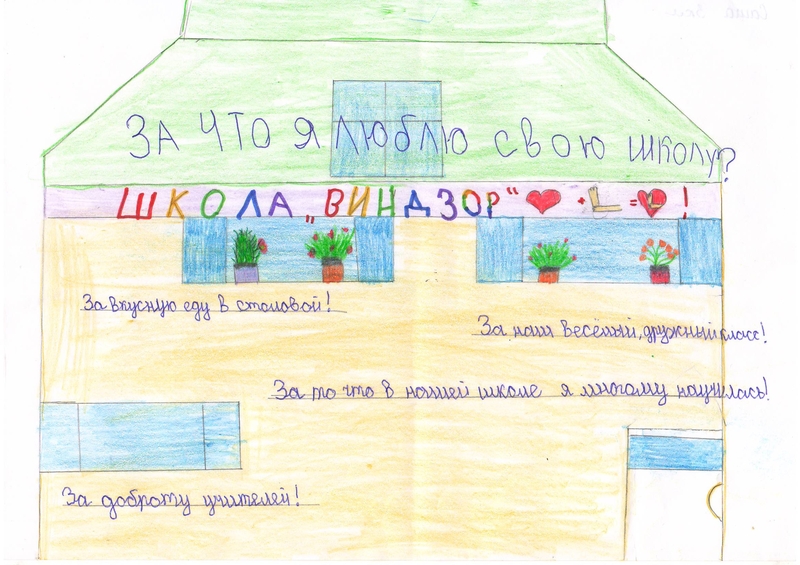 ЗА ЧТО Я ЛЮБЛЮ СВОЮ ШКОЛУ?
ШКОЛА „ВИНДЗОР" ❤ + = ❤ !
За вкусную еду в столовой!
За наш весёлый, дружный класс!
За то что в нашей школе я многому научилась!
За доброту учителей!